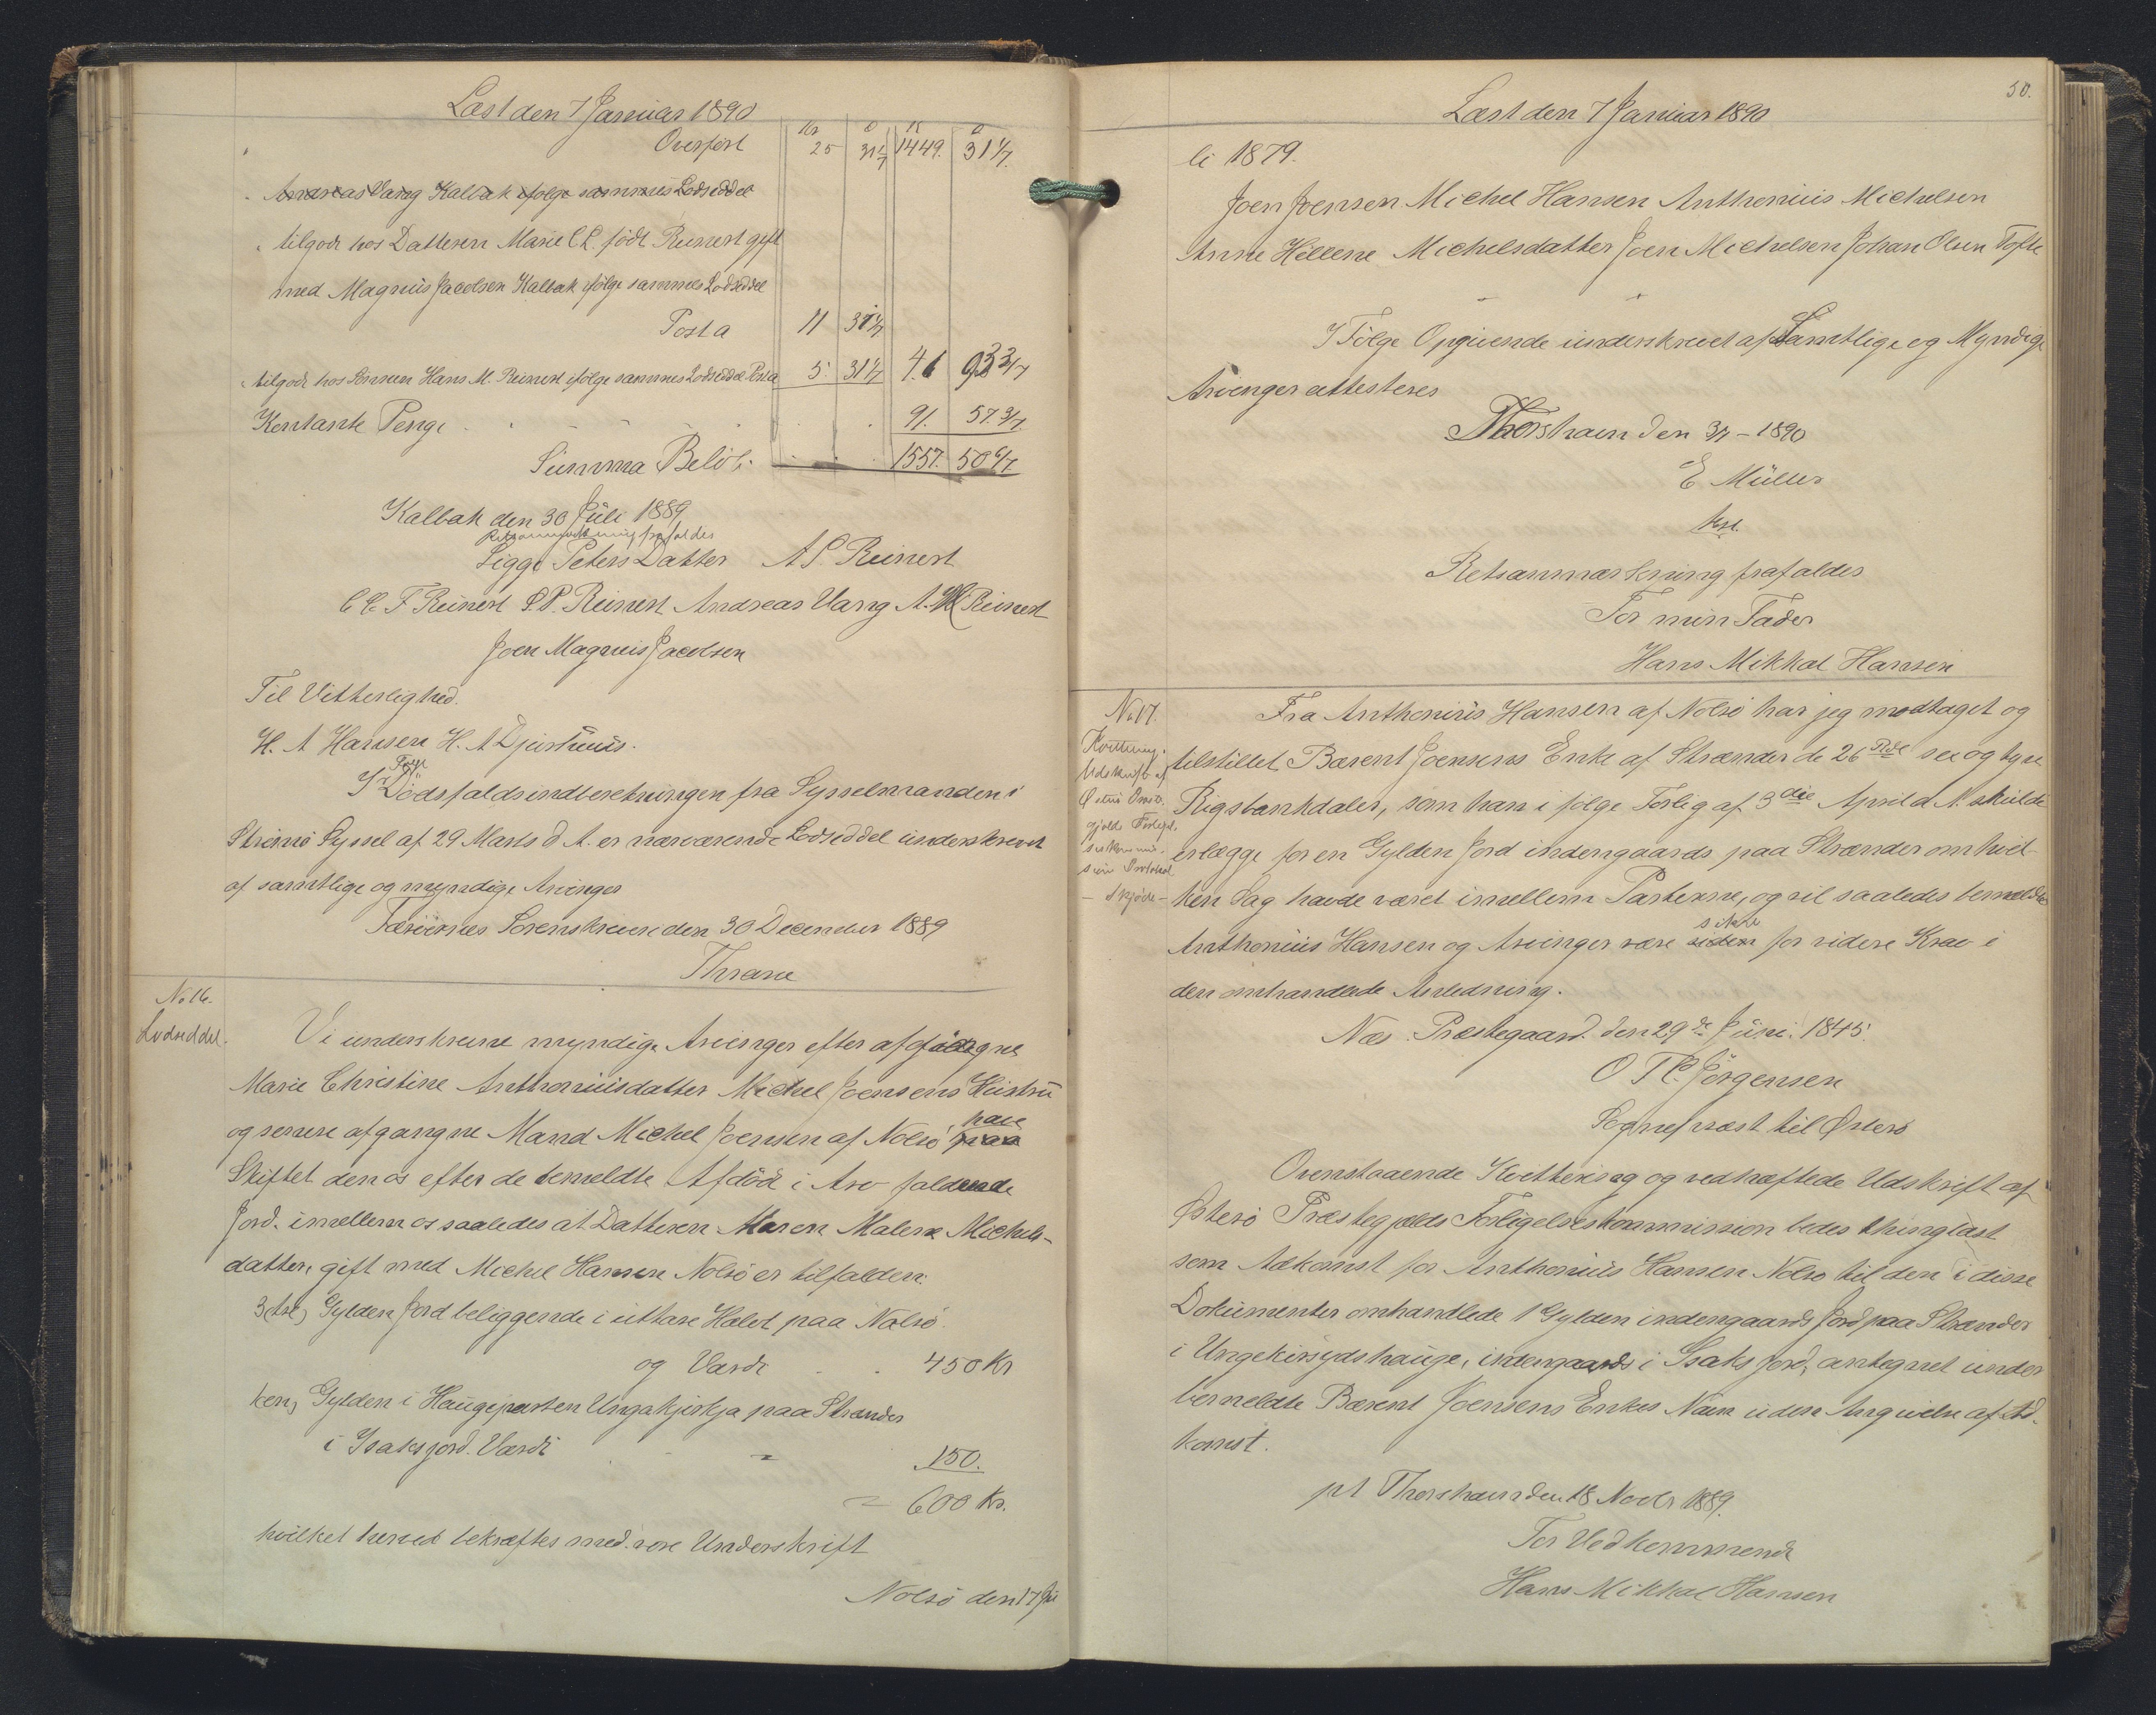 Læst den 7 Januar 1890
Kr Ø K Ø
Overført 25 31 1/7 1449. 31 4/7.
Andreas Vang Kalbak ifølge sammes Lodseddel
tilgode hos Datteren Marie C L. født Reinert gift
med Magnus Jacobsen Kalbak ifølge sammes Lodseddel
Post a 11 31 4/7
tilgode hos Sönnen Hans M. Reinert ifølge sammes Lodseddel Post a 5. 31 1/7 41 93 3/7
Kontante Penge 91. 57 3/7
Summa Beløb. 1557. 50 6/7
Kalbak den 30 Juli 1889
Retsanmærkning frafaldes
Sigge Peters Datter A S. Reinert
C C. F Reinert P. P. Reinert Andreas Vang A. M Reinert
Joen Magnus Jacobsen
Til Vitterlighed.
H. A Hansen H. A Djurhuus.
Følge
I Dödsfaldsindberetningen fra Sysselmanden i
Strømø Syssel af 29 Marts d A. er nærværende Lodseddel underskrevet
af samtlige og myndige Arvinger
Færøernes Sorenskriveri den 30 December 1889
Thrane
No 16.
Lodseddel.
Vi underskrevne myndige Arvinger efter afgangne
Marie Christine Anthoniusdatter Michel Joensens Hustru
have
og senere afgangne Mand Michel Joensen af Nolsö paa
Skiftet den os efter de bemeldte Afdöde i Arv faldende
Jord imellem os saaledes at Datteren Maren Malene Michels-
datter, gift med Michel Hansen Nolsö er tilfalden:
3 (tre) Gylden Jord beliggende i uttare Halvt paa Nolsö
og Værdi 450 Kr
ken, Gylden i Haugeparten Ungakjirkja paa Strander
i Isaksjord. Værdi 150.
= 600 Kr.
hvilket herved bekræftes med vore Underskrift
Nolsö den 17 Ju
50.
Læst den 7 Januar 1890
li 1879.
Joen Joensen Michel Hansen Anthonius Michelsen
Anne Hellene Michelsdatter Joen Michelsen Johan Olsen Tofte
I Følge Opgivende underskrevet af Samtlige og Myndige
Arvinger attesteres
Thorshavn den 3/1 - 1890
E Müller
kst.
Retsanmærkning frafaldes
For min Fader
Hans Mikkal Hansen
No 17.
Kvittering.
Udskrift af
Østerø Præste
gjelds Forligel
seskommis-
sions Protokol
- Skjøde -
Fra Anthonius Hansen af Nolsö har jeg modtaget og
tilstillet Bærent Joensens Enke af Strænder de 26 Rdl sex og tyve
Rigsbankdaler, som han i følge Forlig af 3die April d A. skulde
erlægge for en Gylden Jord indengaards paa Strænder om hvil-
ken Sag havde været imellem Parterne, og vil saaledes bemeldte
sikre
Anthonius Hansen og Arvinger være siden for videre Krav i
den omhandlede Anledning.
Næs Præstegaard. den 29de Juni. 1845.
O P C. Jörgensen
Sognepræst til Østerø
Ovenstaaende Kvittering og vedhæftede Udskrift af
Østerö Præstegjælds Forligelseskommission bedes thinglæst
som Adkomst for Anthonius Hansen Nolsø til den i disse
Dokumenter omhandlede 1 Gylden indengaards Jord paa Strænder
i Ungekirsjdshauge, indengaards i Isaks jord, antegnet under
bemeldte Bærent Joensens Enkes Navn uden Angivelse af Ad-
komst.
pt Thorshavn den 18 Novbr 1889.
For Vedkommende
Hans Mikkal Hansen